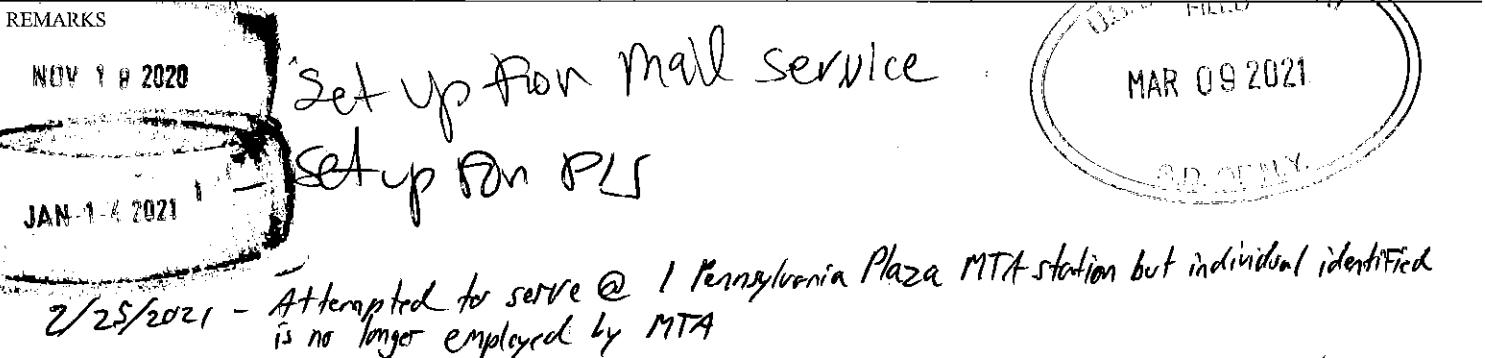 REMARKS
NOV 1 8 2020
Set up for mail service
JAN 1 4 2021
- Set up for PLS
U.S. D
FILED
MAR 09 2021
S.D. OF N.Y.
2/25/2021 - Attempted to serve @ 1 Pennsylvania Plaza MTA station but individual identified
is no longer employed by MTA